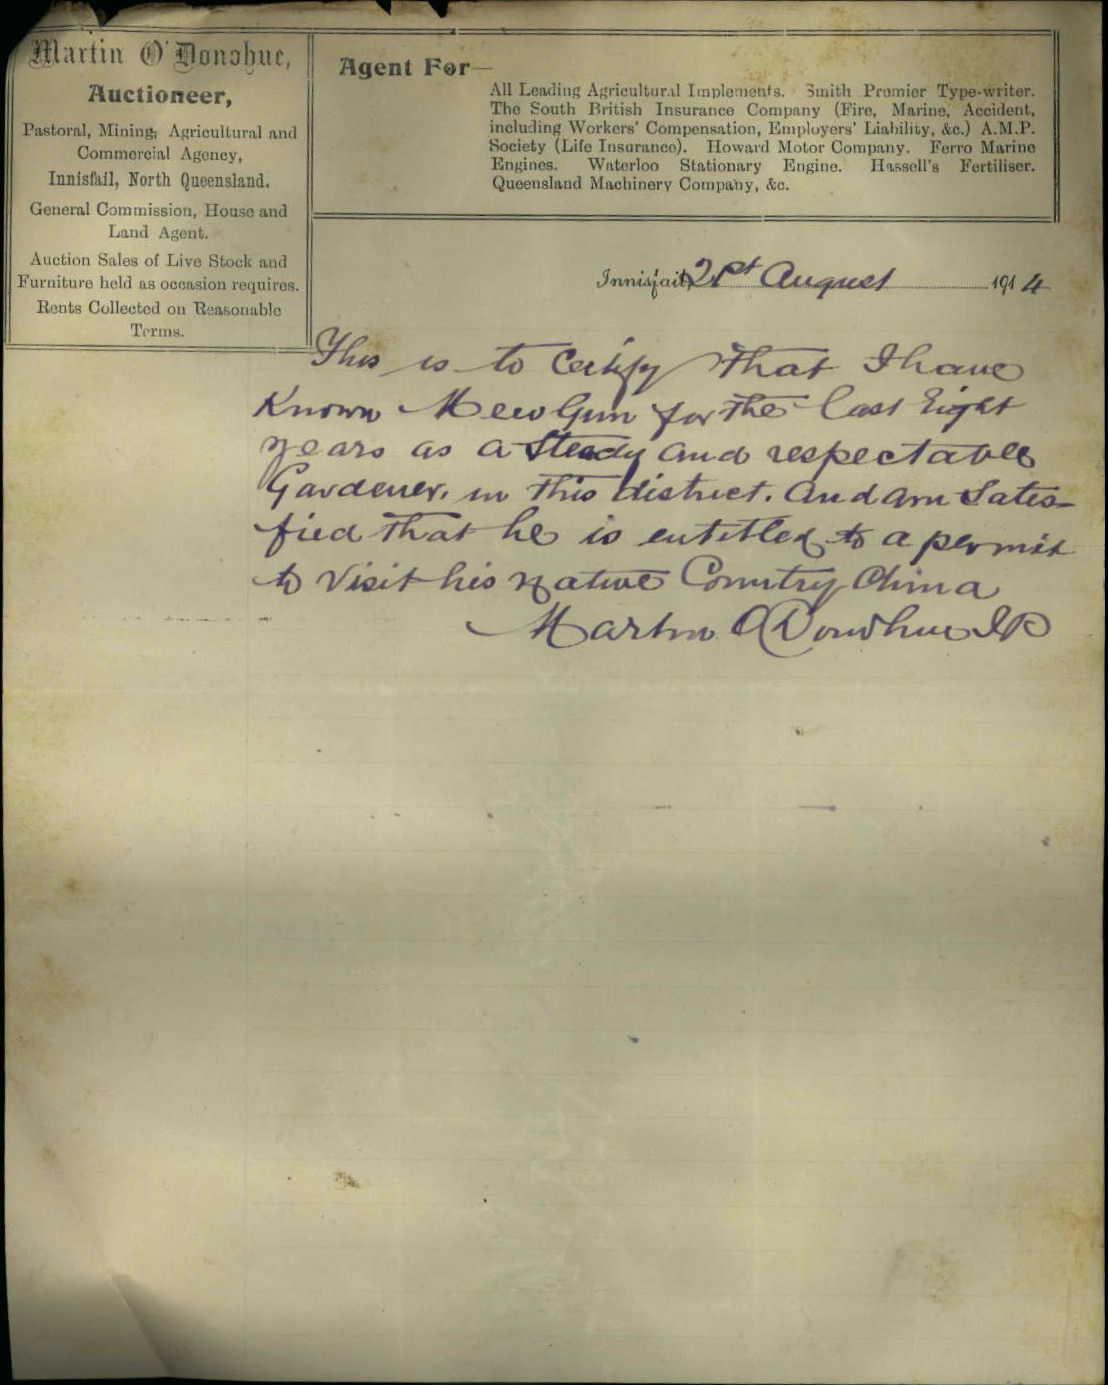 Martin O'Donohue,
Auctioneer,
Pastoral, Mining, Agricultural and
Commercial Agency,
Innisfail, North Queensland.
General Commission, House and
Land Agent.
Auction Sales of Live Stock and
Furniture held as occasion requires.
Rents Collected on Reasonable
Terms.
Agent For—
All Leading Agricultural Implements. Smith Premier Type-writer.
The South British Insurance Company (Fire, Marine, Accident,
including Workers' Compensation, Employers' Liability, &c.) A.M.P.
Society (Life Insurance). Howard Motor Company. Ferro Marine
Engines. Waterloo Stationary Engine. Hassell's Fertiliser.
Queensland Machinery Company, &c.
Innisfail, 21st August 1914
This is to Certify that I have
Known Mew Gum for the last Eight
years as a Steady and respectable
Gardener. in this district. And am Satis-
fied that he is entitled to a permit
to Visit his native Country China
Martin O'Donohue JP